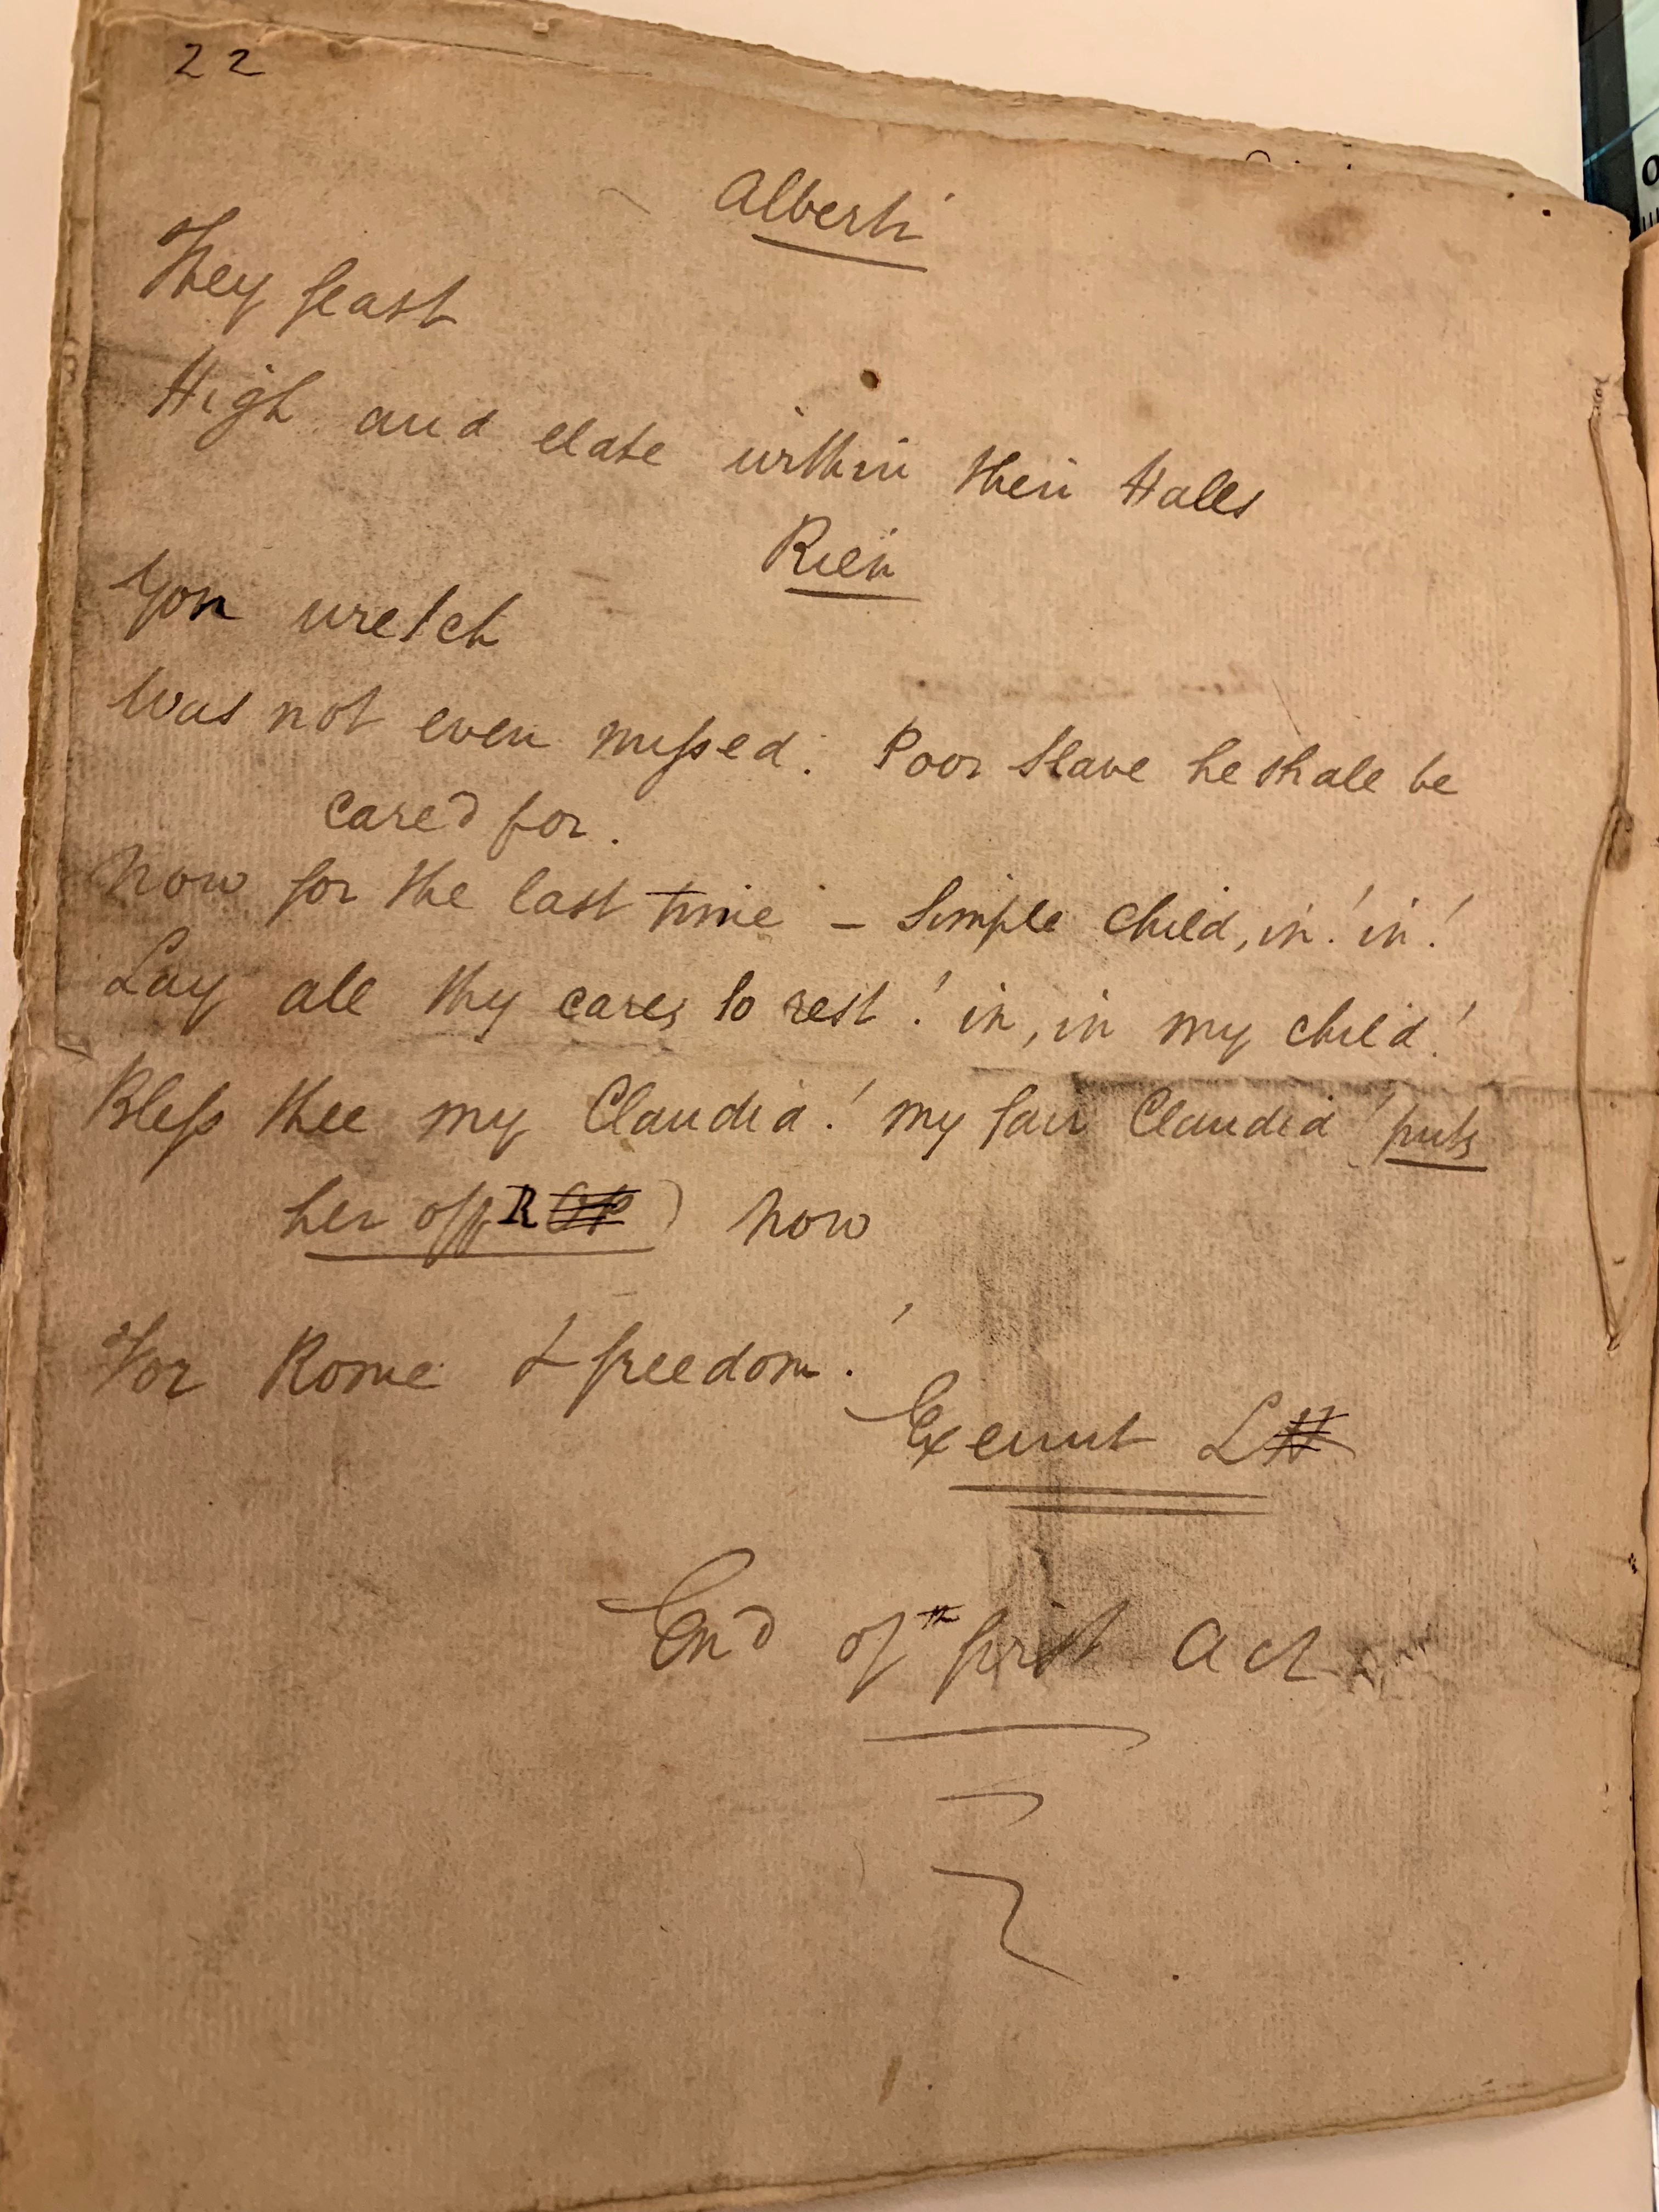 22
Alberti
They feast
High and elate within their Halls
Rien
Yon wretch
Was not even missed. Poor Slave he shall be
cared for.
Now for the last time – Simple child, in! in!
Lay all thy cares to rest! in, in my child!
Bless thee my Claudia! my fair Claudia! puts
her off R OP) Now
For Rome & freedom!
Exeunt L H
End of first Act